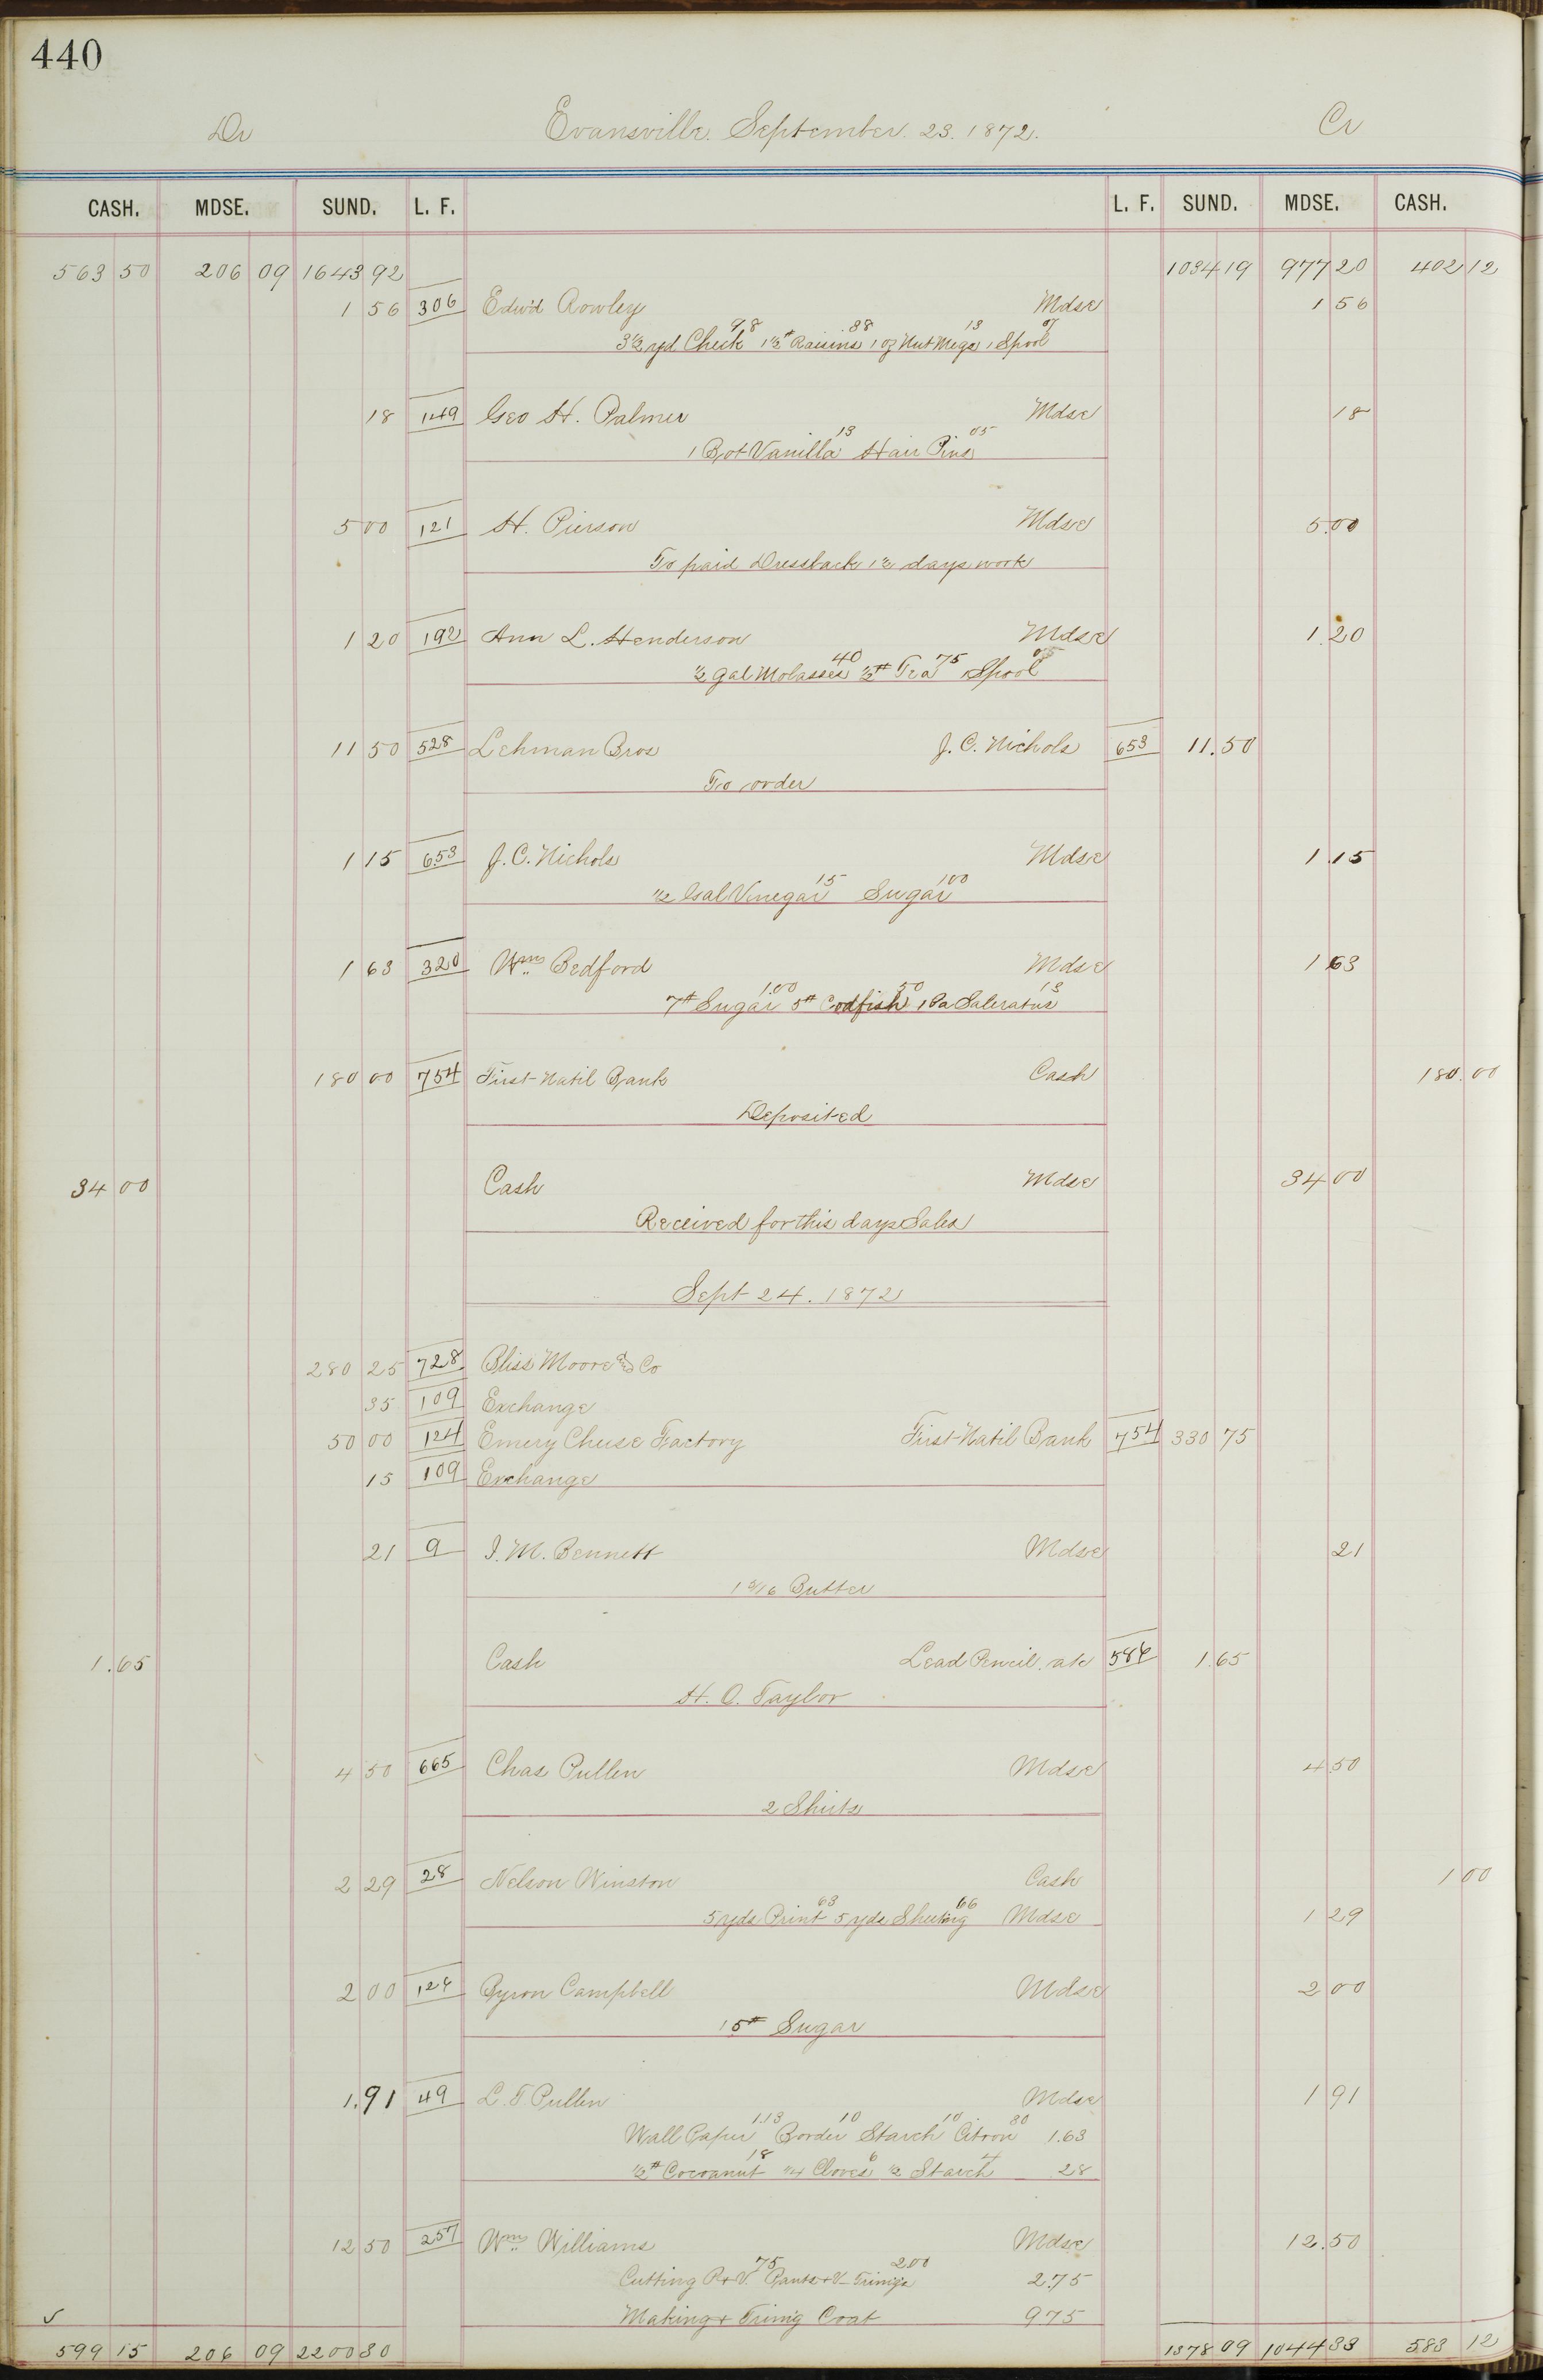 440
Dr Evansville. September. 23. 1872. Cr
CASH. MDSE. SUND. L. F. L. F. SUND. MDSE. CASH.
563 50 206 09 1643 92 1034 19 977 20 402 12
1 56 306 Edw'd Rowley Mdse 1 56
3½ yd Check 98 1½# Raisins 38 1 oz NutMegs 13 1 Spool 07
18 149 Geo H. Palmer Mdse 18
1 Bot Vanilla 13 Hair Pins 05
5 00 121 H. Pierson Mdse 5.00
To paid Dressback 1½ days work
1 20 192 Ann L. Henderson Mdse 1.20
½ gal Molasses 40 ½# Tea 75 Spool 05
11 50 528 Lehman Bros J. C. Nichols 653 11.50
To order
1 15 653 J. C. Nichols Mdse 1.15
½ Gal Vinegar 15 Sugar 100
1 63 320 Wm Bedford Mdse 1 63
7# Sugar 1.00 5# Codfish 50 1 Pa Saleratus 13
180 00 754 First Nat'l Bank Cash 180.00
Deposited
34 00 Cash Mdse 34 00
Received for this days Sales
Sept 24. 1872
280 25 728 Bliss Moore & Co
35 109 Exchange
50 00 124 Emery Cheese Factory First Nat'l Bank 754 330 75
15 109 Exchange
21 9 I. M. Bennett Mdse 21
1 3/16 Butter
1.65 Cash Lead Pencil. a/c 584 1.65
H. O. Taylor
4 50 665 Chas Pullen Mdse 4 50
2 Shirts
2 29 28 Nelson Winston Cash 1 00
5 yds Print 63 5 yds Sheeting 66 Mdse 1 29
2 00 124 Byron Campbell Mdse 2 00
15# Sugar
1.91 49 L. T. Pullen Mdse 1 91
Wall Paper 1.13 Border 10 Starch 10 Citron 30 1.63
½# Cocoanut 18 ¼ Cloves 6 ½ Starch 4 28
12 50 257 Wm Williams Mdse 12.50
Cutting P + V. 75 Pants + V- Trimigs 200 2.75
Making + Trimig Coat 9 75
599 15 206 09 2200 80 1378 09 1044 33 583 12